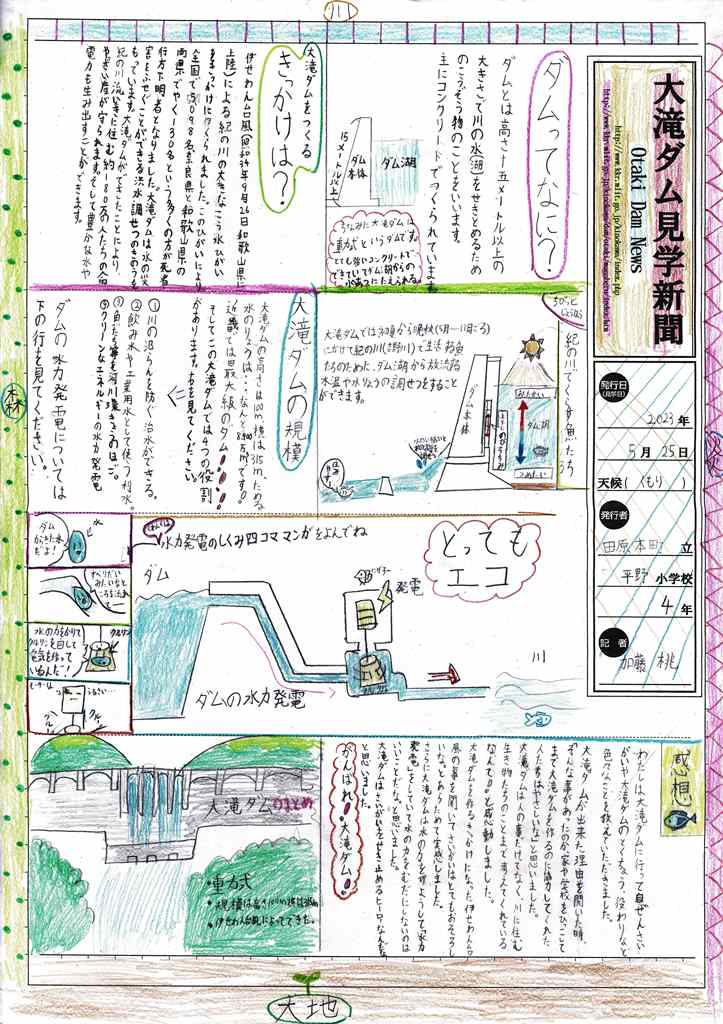 川
大滝ダム見学新聞
Otaki Dam News
http://www.kkr.mlit.go.jp/kinokawa/index.php
発行日
(見学日)
2023年
5月25日
天候(くもり)
発行者
田原本町立
平野小学校
4年
記者
加藤 桃
ダムってなに?
ダムとは高さ十五メートル以上の
大きさで川の水(湖)をせきとめるため
のこうぞう物のことをいいます。
主にコンクリートでつくられています。
ダム湖
ダム本体
15メートル以上
ちなみに大滝ダムは
重力式というダムです。
とても強いコンクリートで
できていてダム湖からの
水あつにたえられる。
大滝ダムをつくる
きっかけは?
伊せわん台風(昭和34年9月26日和歌山県に
上陸)による紀の川の大きなこう水ひがい
がきっかけにつくられました。このひがいにより
全国で5098名奈良県と和歌山県の
両県でやく130名という多くの方が死者
行方不明者となりました。大滝ダムは水の災
害をふせぐことができる洪水調せつのきのうを
もっています。大滝ダムができたことにより、
紀の川流いきに住む約180万人たちの命
やざい産が守られます。そして豊かな水や
電力も生み出すことができます。
紀の川でくらす魚たち
大滝ダムでは初春から晩秋(5月〜11月ごろ)
にかけて紀の川(吉野川)で生活する魚
たちのために、ダム湖から放流する
水温や水りょうの調せつをすること
ができます。
ダム本体
ダム湖
あたたかい
つめたい
大滝ダムの規模
大滝ダムの高さは100m、横は315m、ためる
水のりょうは…なんと8400万m³です!!
近畿では最大級のダム!!!
そしてこの大滝ダムでは4つの役割
があります。左を見てください。
①川のはんらんを防ぐ治水ができる。
②飲み水や工業用水として使う利水。
③魚たち等を河川環きょうのほご。
④クリーンなエネルギーの水力発電
ダムの水力発電については
下の行を見てください。
水力発電のしくみ四コママンガをよんでね
とっても
エコ
ダム
発電
川
ダムの水力発電
ダム
からきた水
だよ!
水
すべりだい
みたいな
ところを流れ
る〜
水の力をかりて
クルリンを回して
電気を作って
いるんだ!
クルリン
感想
わたしは大滝ダムに行って自ぜんさい
がいや大滝ダムのとくちょう、役わりなど
色々なことを教えていただきました。
大滝ダムが出来た理由を聞いた時、
そんな事があったのか、家や学校をひっこして
まで大滝ダムを作るのに協力してくれた
人た者はやさしいな。と思いました。
大滝ダムは人の事だけでなく、川に住む
生き物たちのことまで考えてくれている
なんて!!と感動しました。
大滝ダムを作るきっかけになった伊せわん台
風の事を聞いてさいがいはとてもおそろし
いな。とあらためて実感しました。
さらに大滝ダムは水の力を利ようして水力
発電をしていて水の力をむだにしないのは
いいことだな。と思いました。
大滝ダムはさいがいをせき止めるヒーローなんだな。
と思いました。
がんばれ!!大滝ダム!
大滝ダムのまとめ
・重力式
・規模は高さ100m横は315m
・伊せわん台風によってできた。
森
大地